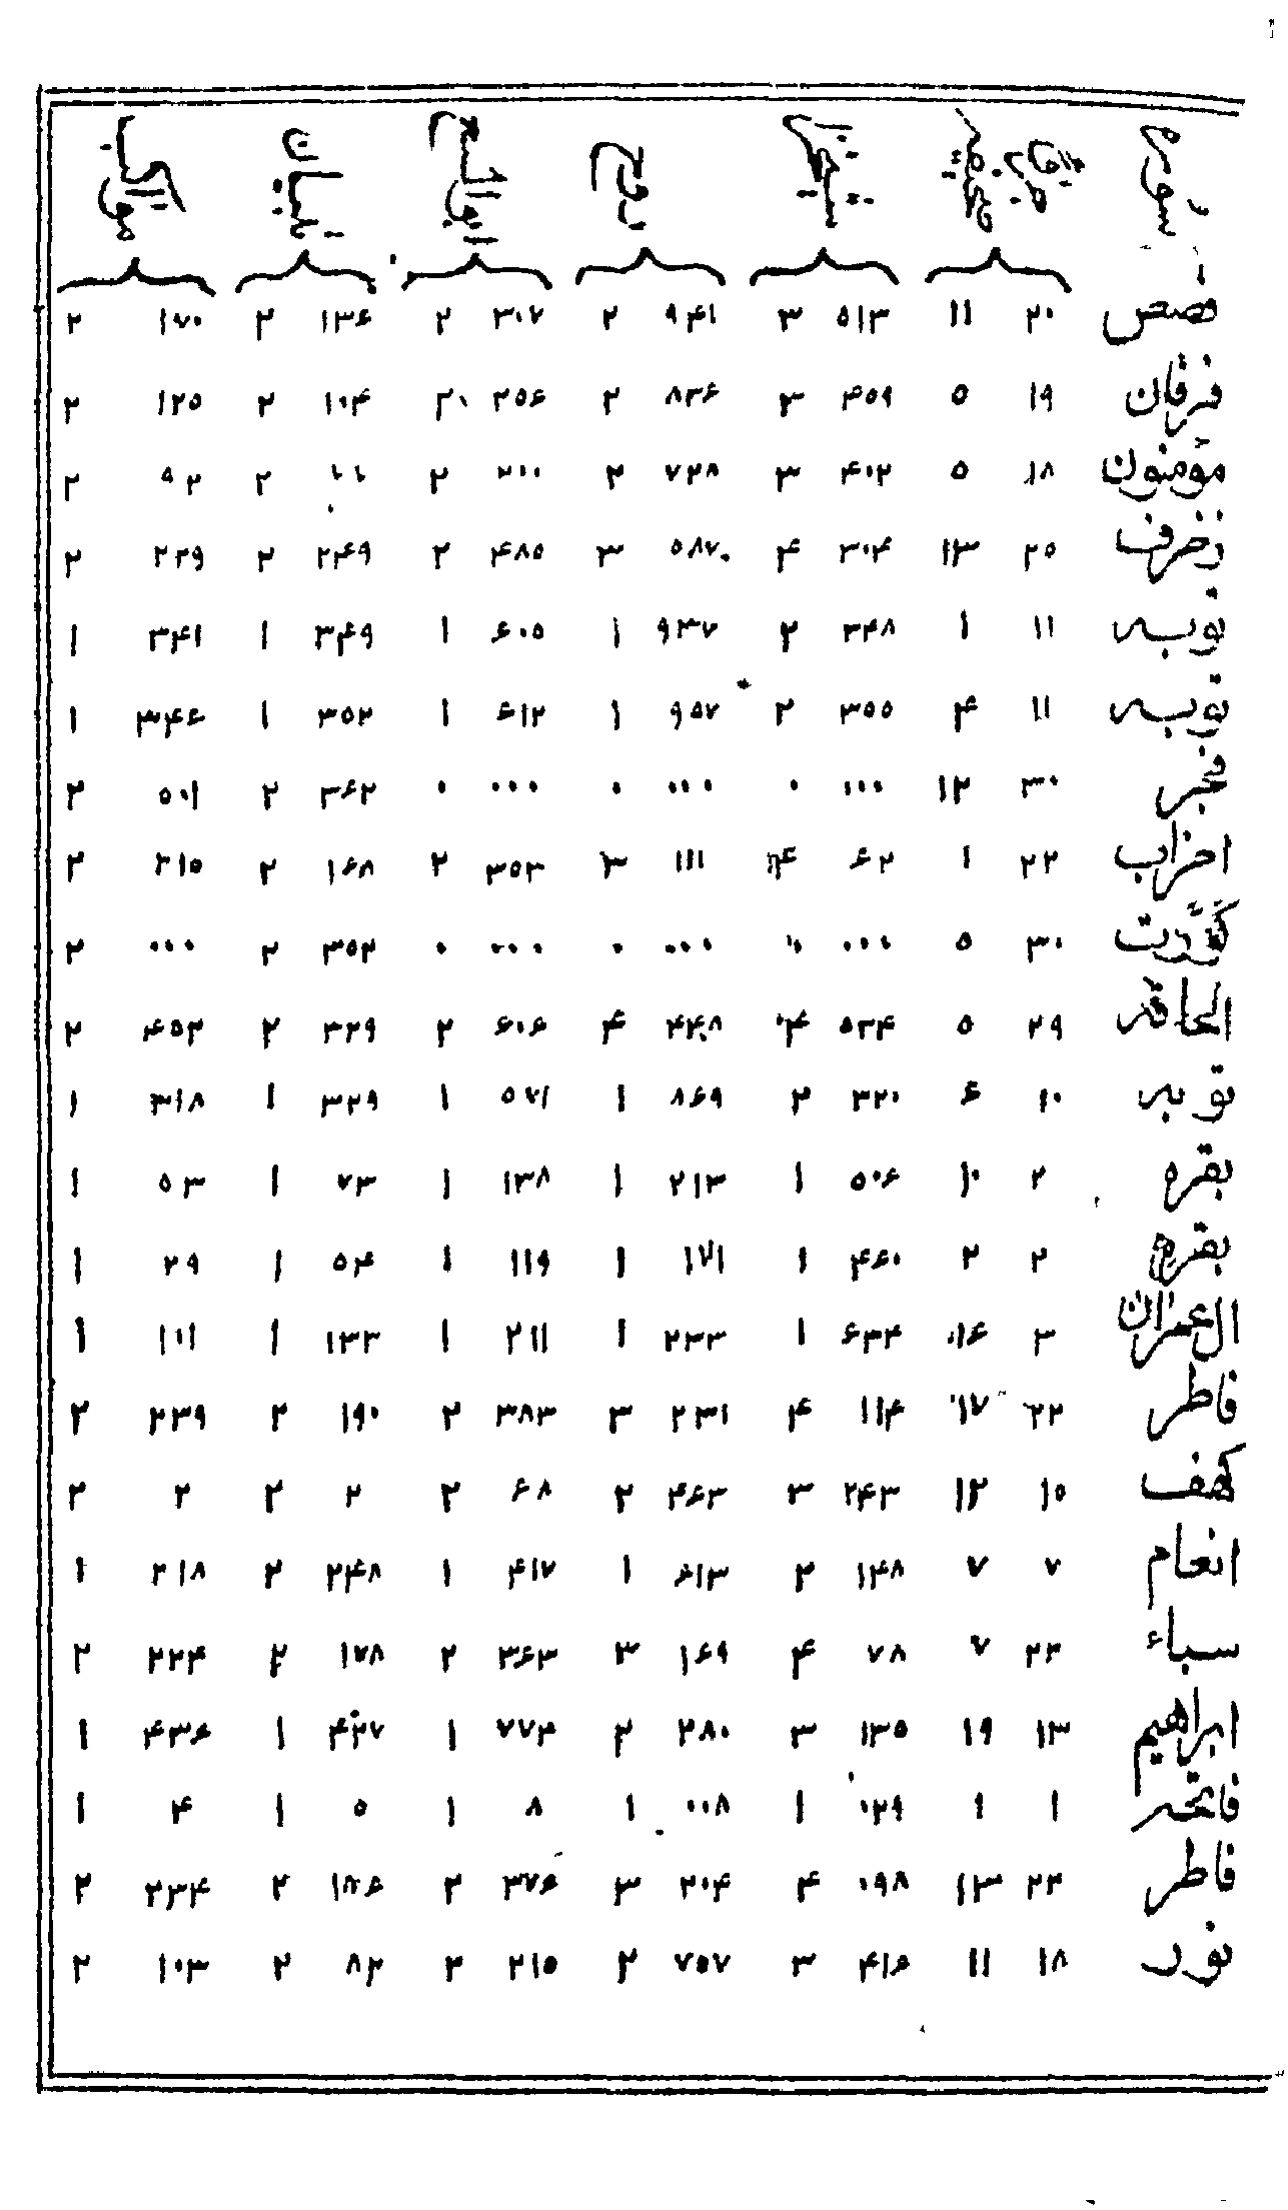 سوره
قصص ۲۰ ۱۱ ۵۱۳ ۳ ۹۴۱ ۲ ۳۰۷ ۲ ۱۳۶ ۲ ۱۷۰ ۲
فرقان ۱۹ ۵ ۴۵۹ ۳ ۸۳۶ ۲ ۲۵۶ ۲ ۱۰۴ ۲ ۱۲۵ ۲
مؤمنون ۱۸ ۵ ۴۰۲ ۳ ۷۲۸ ۲ ۲۰۰ ۲ ۲ ۹۲ ۲
زخرف ۲۵ ۱۳ ۳۰۴ ۴ ۵۸۷ ۳ ۴۸۵ ۲ ۲۴۹ ۲ ۲۲۹ ۲
توبه ۱۱ ۱ ۳۴۸ ۲ ۹۳۷ ۱ ۶۰۵ ۱ ۳۴۹ ۱ ۳۴۱ ۱
توبه ۱۱ ۴ ۳۵۵ ۲ ۹۵۷ ۱ ۶۱۲ ۱ ۳۵۲ ۱ ۳۴۶ ۱
فجر ۳۰ ۱۲ ۰۰۰ ۰ ۰۰۰ ۰ ۰۰۰ ۰ ۳۶۲ ۲ ۵۰۱ ۲
احزاب ۲۲ ۱ ۶۲ ۴ ۱۱۱ ۳ ۳۵۳ ۲ ۱۶۸ ۲ ۲۱۵ ۲
کوّرت ۳۰ ۵ ۰۰۰ ۰ ۰۰۰ ۰ ۰۰۰ ۰ ۳۵۲ ۲ ۰۰۰ ۲
الحاقه ۲۹ ۵ ۵۳۴ ۴ ۴۴۸ ۴ ۶۰۶ ۲ ۳۲۹ ۲ ۴۵۲ ۲
توبه ۱۰ ۶ ۳۲۰ ۲ ۸۶۹ ۱ ۵۷۱ ۱ ۳۲۹ ۱ ۳۱۸ ۱
بقره ۲ ۱۰ ۵۰۶ ۱ ۲۱۳ ۱ ۱۳۸ ۱ ۷۳ ۱ ۵۳ ۱
بقره ۲ ۲ ۴۶۰ ۱ ۱۷۱ ۱ ۱۱۹ ۱ ۵۴ ۱ ۲۹ ۱
ال عمران ۳ ۱۶ ۶۳۴ ۱ ۲۳۳ ۱ ۲۱۱ ۱ ۱۳۳ ۱ ۱۰۱ ۱
فاطر ۲۲ ۱۷ ۱۱۴ ۴ ۲۳۱ ۳ ۳۸۳ ۲ ۱۹۰ ۲ ۲۳۹ ۲
کهف ۱۵ ۱۲ ۲۴۳ ۳ ۴۶۳ ۲ ۶۸ ۲ ۲ ۲ ۲ ۲
انعام ۷ ۷ ۱۴۸ ۲ ۶۱۳ ۱ ۴۱۷ ۱ ۲۴۸ ۲ ۲۱۸ ۱
سباء ۲۲ ۷ ۷۸ ۴ ۱۶۹ ۳ ۳۶۳ ۲ ۱۷۸ ۲ ۲۲۴ ۲
ابراهیم ۱۳ ۱۹ ۱۳۵ ۳ ۲۸۰ ۲ ۷۷۴ ۱ ۴۲۷ ۱ ۴۳۶ ۱
فاتحه ۱ ۱ ۰۲۹ ۱ ۰۰۸ ۱ ۸ ۱ ۵ ۱ ۴ ۱
فاطر ۲۲ ۱۳ ۰۹۸ ۴ ۲۰۴ ۳ ۳۷۶ ۲ ۱۸۶ ۲ ۲۳۴ ۲
نور ۱۸ ۱۱ ۴۱۶ ۳ ۷۵۷ ۲ ۲۱۵ ۲ ۸۲ ۲ ۱۰۳ ۲